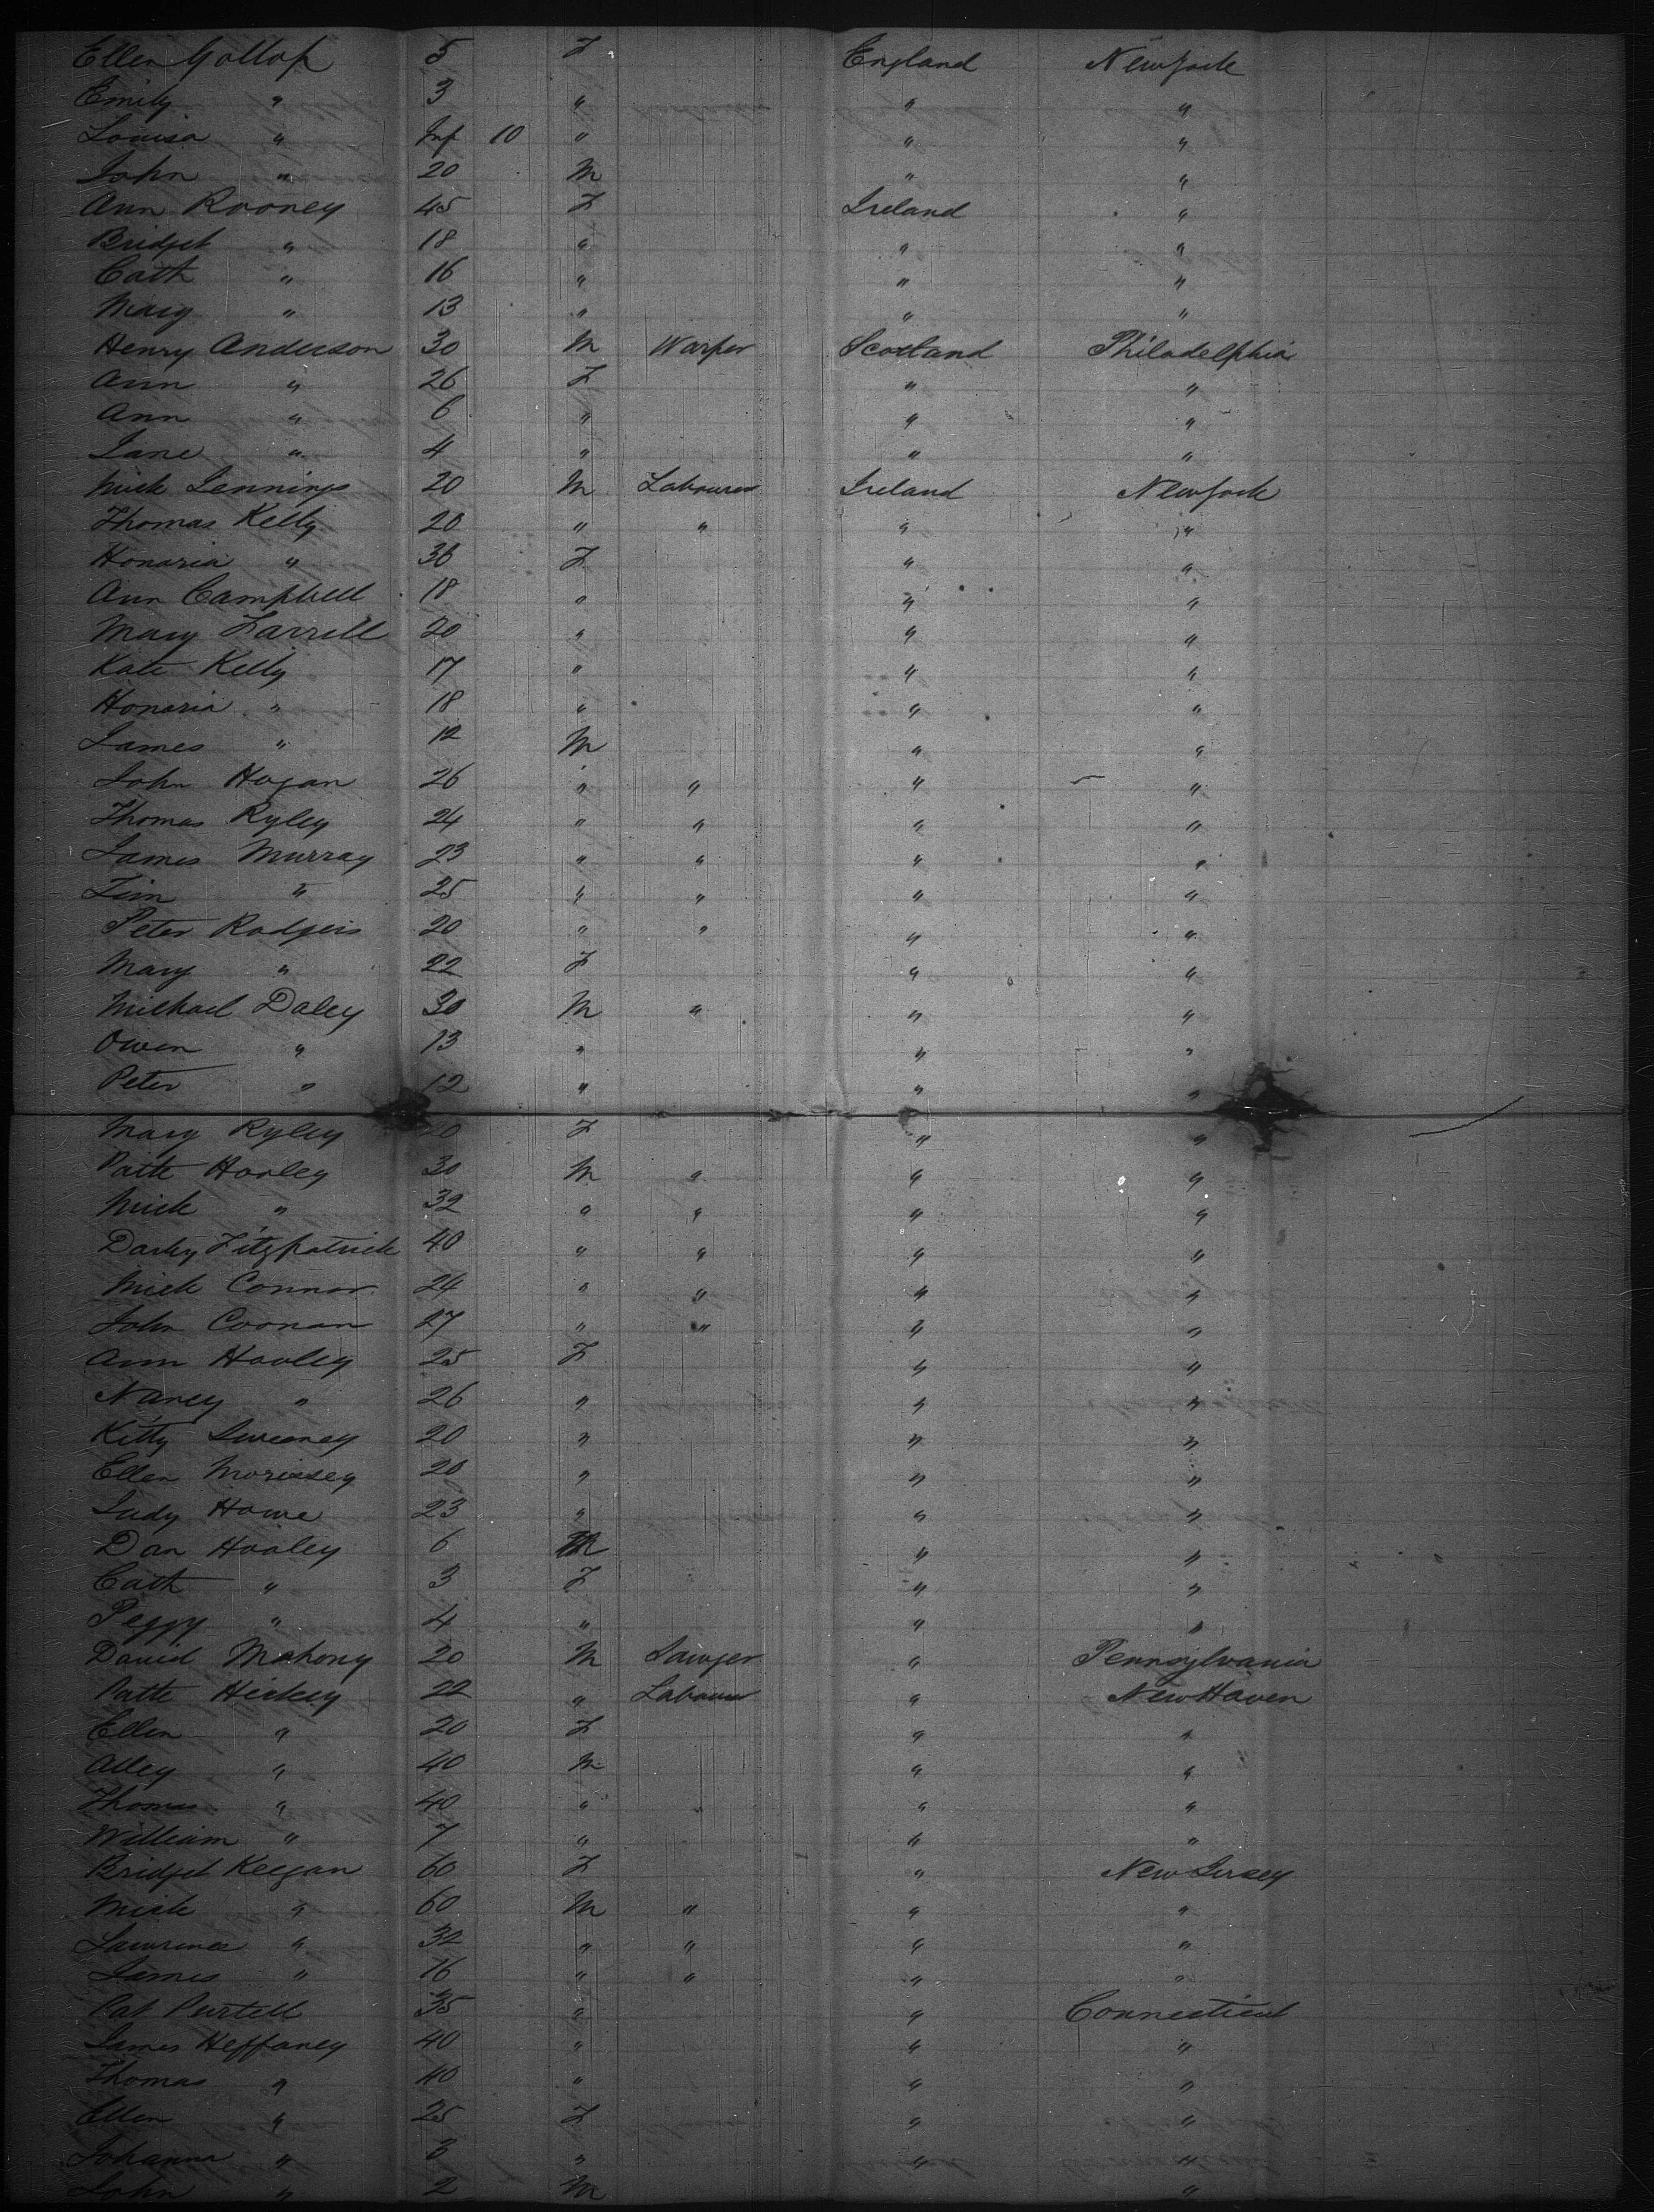 Ellen Gallop 5 F England New York
Emily " 3 " " "
Louisa " Inf 10 " " "
John " 20 M " "
Ann Rooney 45 F Ireland "
Bridget " 18 " " "
Cath " 16 " " "
Mary " 13 " " "
Henry Anderson 30 M Warper Scotland Philadelphia
Ann " 26 F " "
Ann " 6 " " "
Jane " 4 " " "
Mick Jennings 20 M Labourer Ireland New York
Thomas Kelly 20 " " " "
Honaria " 36 F " "
Ann Campbell 18 " " "
Mary Farrell 20 " " "
Kate Kelly 17 " " "
Honaria " 18 " " "
James " 12 M " "
John Hogan 26 " " " "
Thomas Ryley 24 " " " "
James Murray 23 " " " "
Tim " 25 " " " "
Peter Rodgers 20 " " " "
Mary " 22 F " "
Michael Daley 30 M " " "
Owen " 13 " " "
Peter " 12 " " "
Mary Ryley F " "
Patk Hooley 30 M " " "
Mick " 32 " " " "
Darby Fitzpatrick 40 " " " "
Mick Connor 24 " " " "
John Coonan 27 " " " "
Ann Hooley 25 F " "
Nancy " 26 " " "
Kitty Sweeney 20 " " "
Ellen Morissey 20 " " "
Judy Howe 23 " " "
Dan Hooley 6 M " "
Cath " 3 F " "
Peggy " 4 " " "
David Mahony 20 M Sawyer " Pennsylvania
Patk Hickey 22 " Labourer " New Haven
Ellen " 20 F " "
Alley " 40 M " "
Thomas " 40 " " "
William " 7 " " "
Bridget Keegan 60 F " New Jersey
Mick " 60 M " " "
Lawrence " 32 " " " "
James " 16 " " " "
Pat Purtell 35 " " Connecticut
James Heffaney 40 " " "
Thomas " 40 " " "
Ellen " 25 F " "
Johanna " 3 " " "
John " 2 M "